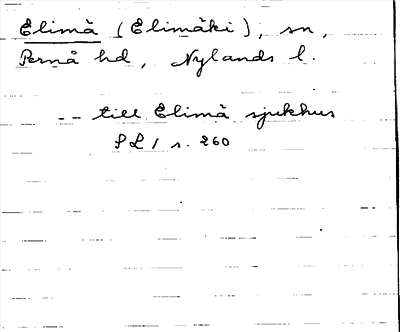 Elimä (Elimäki), sn,
Pernå hd, Nylands l.
-- till Elimä sjukhus
SL 1 s. 260